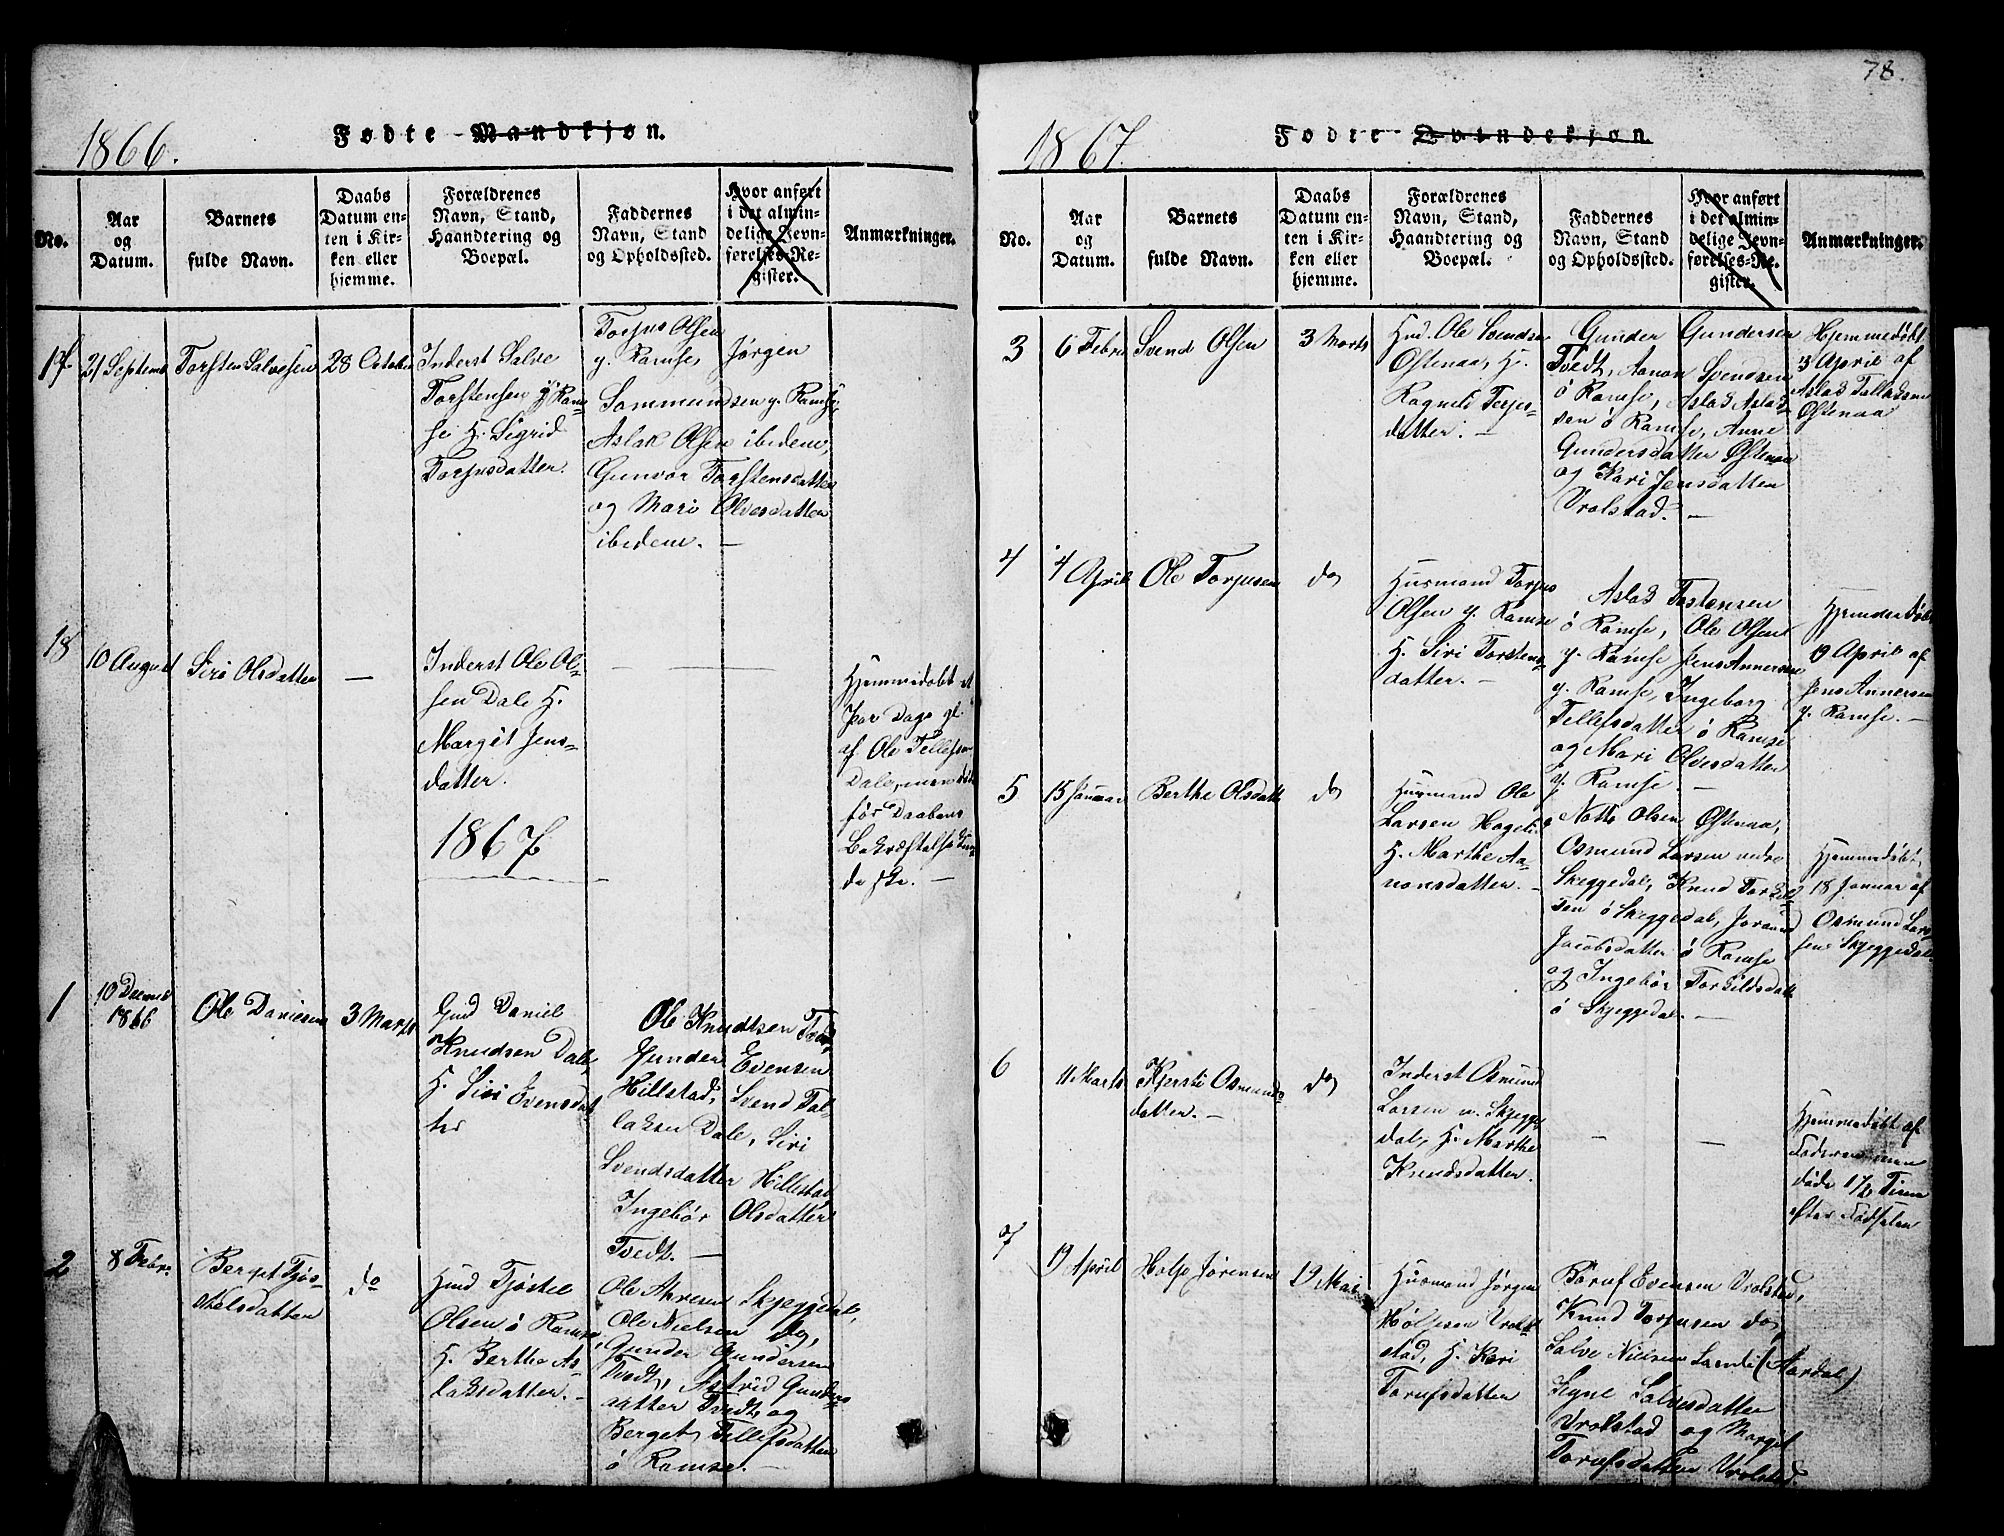 1866.
Fødte Mandkjøn.
No.
Aar
og
Datum.
Barnets
fulde Navn.
Daabs
Datum en-
ten i Kir-
ken eller
hjemme.
Forældrenes
Navn, Stand,
Haandtering og
Boepæl.
Faddernes
Navn, Stand
og Opholdssted.
Hvor anført
i det almin-
delige Jevn-
førelses-Re-
gister.
Anmærkninger.
17
21 Septemb
Torsten Salvesen
28 October
Inderst Salve
Torstensen y Ram-
se H. Sigrid
Torjusdatter.
Torjus Olsen
y. Ramse, Jørgen
Sammundsen y. Ramse,
Aslak Olsen ibidem,
Gunvor Torstensdatter
og Mari Olvesdatter
ibidem. —
18
10 August
Siri Olsdatter
—
Inderst Ole Ol-
sen Dale H.
Margit Jens-
datter.
— —
Hjemmedøbt et
Par Dage gl.
af Ole Tellefsen
Dale, men døde
før Daabens
Bekræftelse kun-
de ske. —
1867
1
10 Decemb
1866
Ole Danielsen
3 Marts
Gmd Daniel
Knudsen Dale,
H. Siri Evensdat
ter
Ole Knudtsen Tvedt,
Gunder Evensen
Hillstad, Svend Tal-
laksen Dale, Siri
Svendsdatter Hillestad,
Ingebør Olsdatter
Tvedt. —
2
8 Febr.
Berget Tjøs-
telsdatter
do
Hmd Tjøstel
Olsen ö Ramse,
H. Berthe As-
laksdatter. —
Ole Alvesen Skjeggedal,
Ole Nielsen do,
Gunder Gundersen
Tvedt, Astrid Gunders-
datter Tvedt og
Berget Tellefsdatter
ö Ramse. —
78.
1867.
Fødte Qvindekjøn.
No.
Aar
og
Datum.
Barnets
fulde Navn.
Daabs
Datum en-
ten i Kir-
ken eller
hjemme.
Forældrenes
Navn, Stand,
Haandtering og
Boepæl.
Faddernes
Navn, Stand
og Opholdssted.
Hvor anført
i det almin-
delige Jevn-
førelses-Re-
gister.
Anmærkninger.
3
6 Febru
Svend Olsen
3 Marts
Hmd. Ole Svendsen
Østenaa, H.
Ragnild Terjes-
datter. —
Gunder Gundersen
Tvedt, Aanon Svendsen
ö Ramse, Aslak Aslak-
sen ö Ramse, Anne
Gundersdatter Østenaa
og Kari Jensdatter
Vrolstad. —
Hjemmedøbt
3 April af
Aslak Tallaksen
Østenaa
4
4 April
Ole Torjusen
do
Husmand Torjus
Olsen y. Ramse
H. Siri Torstens-
datter. —
Aslak Tostensen
ö Ramse, Ole Olsen
y. Ramse Jens Annersen
y. Ramse, Ingeborg
Tellefsdatter ö Ramse
og Mari Olvesdatter
y. Ramse —
Hjemmedøbt
9 April af
Jens Annersen
y. Ramse. —
5
15 Januar
Berthe Olsdatt
do
Husmand Ole
Larsen Hageli,
H. Marthe Aa-
nonsdatter. —
Notto Olsen Østenaa,
Osmund Larsen nedre
Skeggedal, Knud Torkild-
sen ö Skeggedal, Joraand
Jacobsdatter ö Ramse
og Ingebør Torkildsdatt
ö Skjeggedal. —
Hjemmedøbt
18 Januar af
Osmund Lar-
sen Skjeggedal
6
11 Marts
Kjersti Osmunds-
datter. —
do
Inderst Osmund
Larsen n. Skjegge
dal, H. Marthe
Knudsdatter.
— —
Hjemmedøbt af
Faderen men
døde 1½ Time
efter Fødselen
7
19 April
Holje Jørensen
19 Mai
Husmand Jørgen
Höljesen Vrol-
stad, H. Kari
Torufsdatter
Toruf Evensen Vrolstad,
Knud Torjusen do,
Salve Nielsen Lamli (Aardal)
Signe Salvesdatter
Vrolstad og Margit
Torufsdatter Vrolstad.